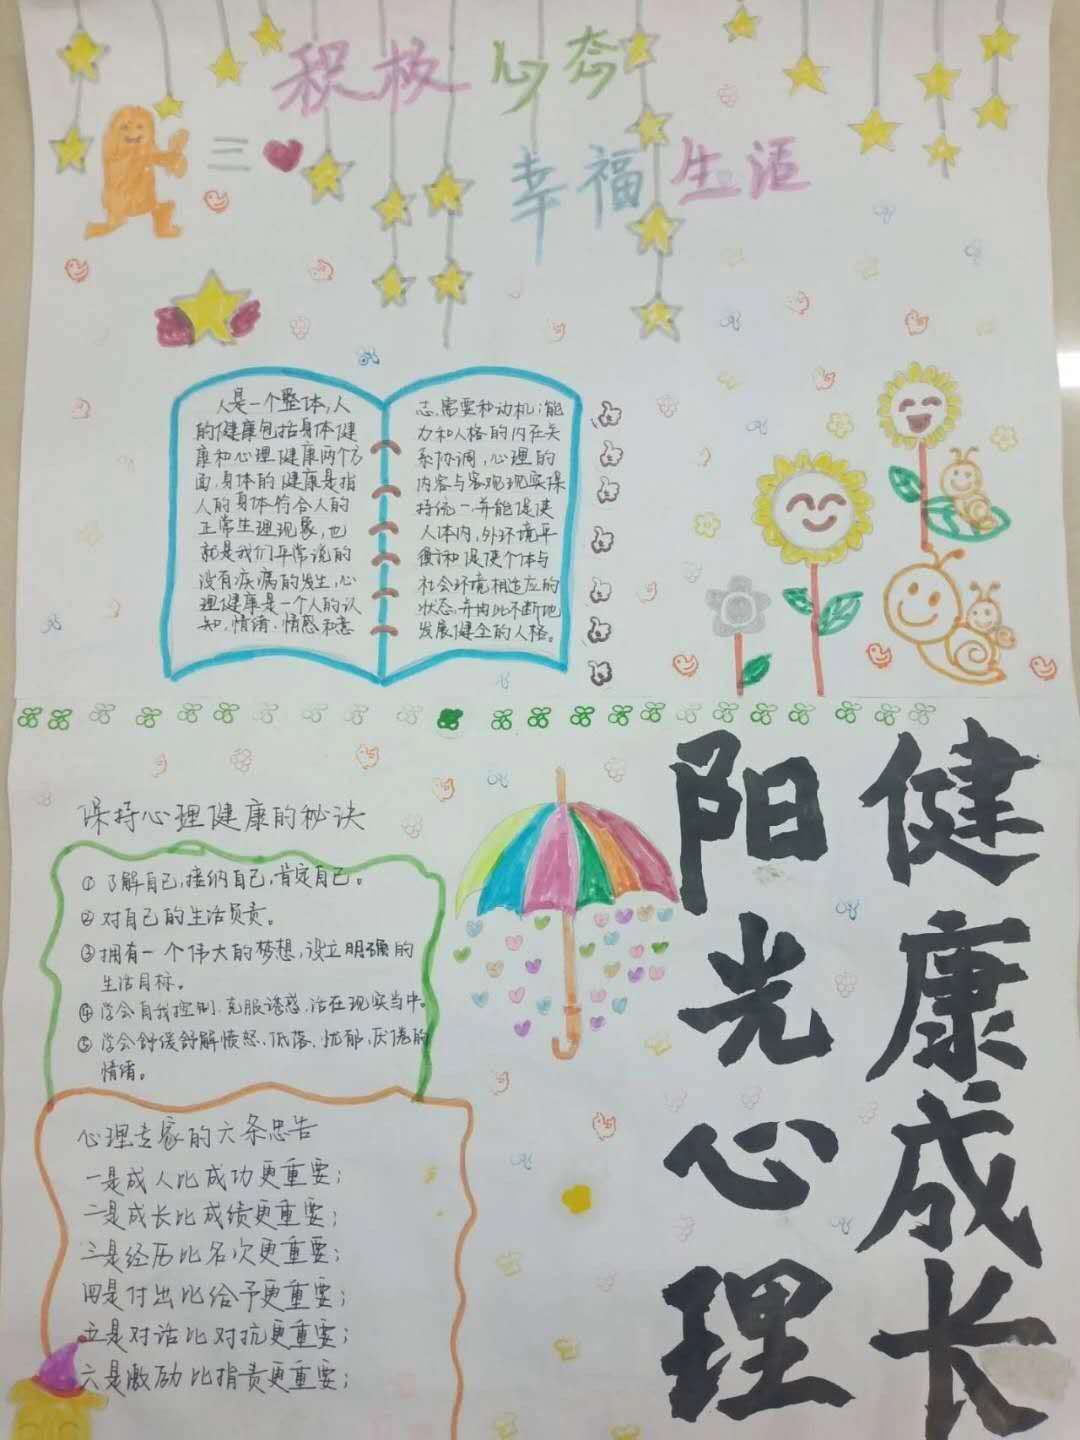 积极心态
幸福生活
人是一个整体,人
的健康包括身体健
康和心理健康两个方
面,身体的健康是指
人的身体符合人的
正常生理现象,也
就是我们平常说的
没有疾病的发生,心
理健康是一个人的认
知、情绪、情感和意
志、需要和动机;能
力和人格的内在关
系协调,心理的
内容与客观现实保
持统一,并能促使
人体内,外环境平
衡和促使个体与
社会环境相适应的
状态,并由此不断地
发展健全的人格。
保持心理健康的秘诀
①了解自己,接纳自己,肯定自己。
②对自己的生活负责。
③拥有一个伟大的梦想,设立明确的
生活目标。
④学会自我控制、克服诱惑、活在现实当中。
⑤学会舒缓舒解愤怒、低落、忧郁、厌倦的
情绪。
心理专家的六条忠告
一是成人比成功更重要;
二是成长比成绩更重要;
三是经历比名次更重要;
四是付出比给予更重要;
五是对话比对抗更重要;
六是激励比指责更重要;
阳光心理
健康成长